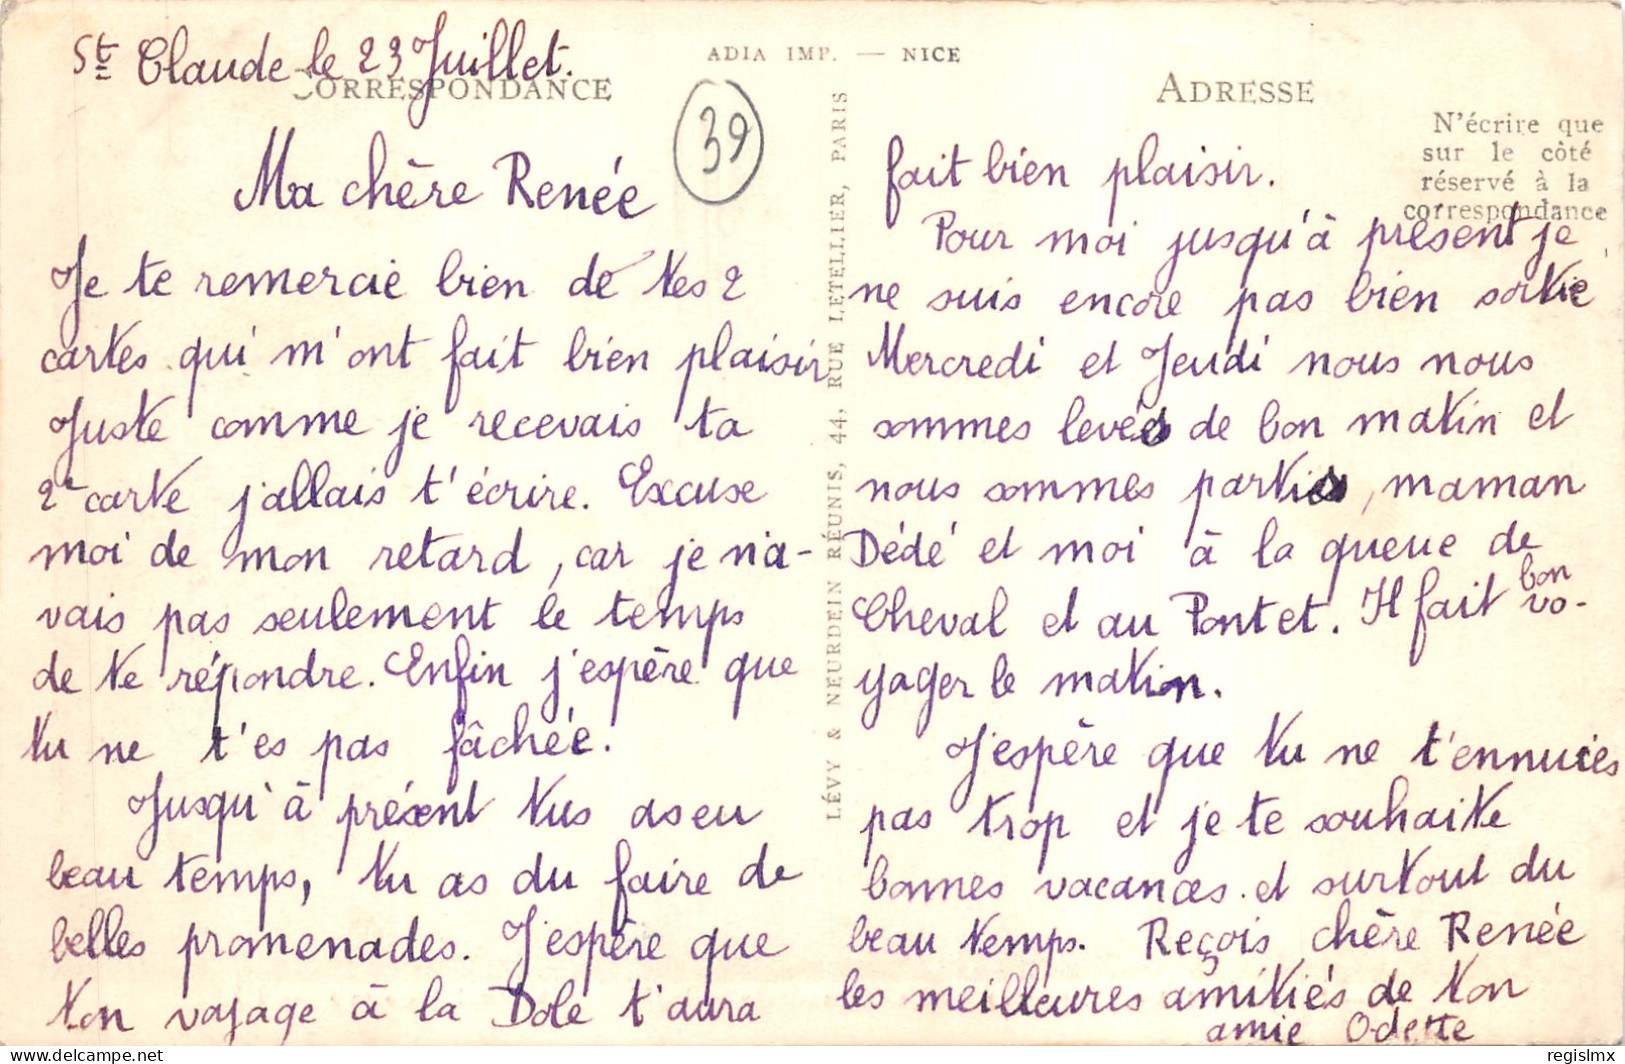 St Claude le 23 Juillet.
CORRESPONDANCE
ADIA IMP. — NICE
39
Ma chère Renée
Je te remercie bien de tes 2
cartes qui m'ont fait bien plaisir
Juste comme je recevais ta
2e carte j'allais t'écrire. Excuse
moi de mon retard, car je n'a-
vais pas seulement le temps
de te répondre. Enfin j'espère que
tu ne t'es pas fâchée.
Jusqu'à présent tus as eu
beau temps, tu as du faire de
belles promenades. J'espère que
ton voyage à la Dole t'aura
LÉVY & NEURDEIN RÉUNIS, 44, RUE LETELLIER, PARIS
ADRESSE
N'écrire que
sur le côté
réservé à la
correspondance
fait bien plaisir.
Pour moi jusqu'à présent je
ne suis encore pas bien sortie
Mercredi et Jeudi nous nous
sommes levés de bon matin et
nous sommes partis, maman
Dédé et moi à la queue de
Cheval et au Pontet. Il fait bon vo-
yager le matin.
J'espère que tu ne t'ennuies
pas trop et je te souhaite
bonnes vacances et surtout du
beau temps. Reçois chère Renée
les meilleures amitiés de ton
amie Odette
regislmx